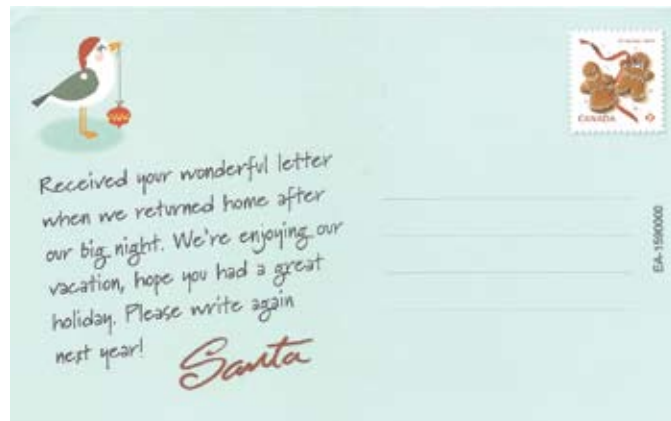 CANADA
Received your wonderful letter
when we returned home after
our big night. We're enjoying our
vacation, hope you had a great
holiday. Please write again
next year!
Santa
EA-1590000